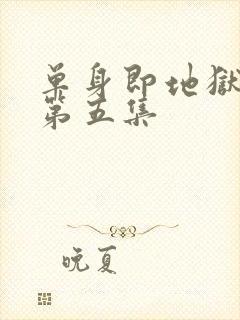 单身即地狱
第五集
晚夏